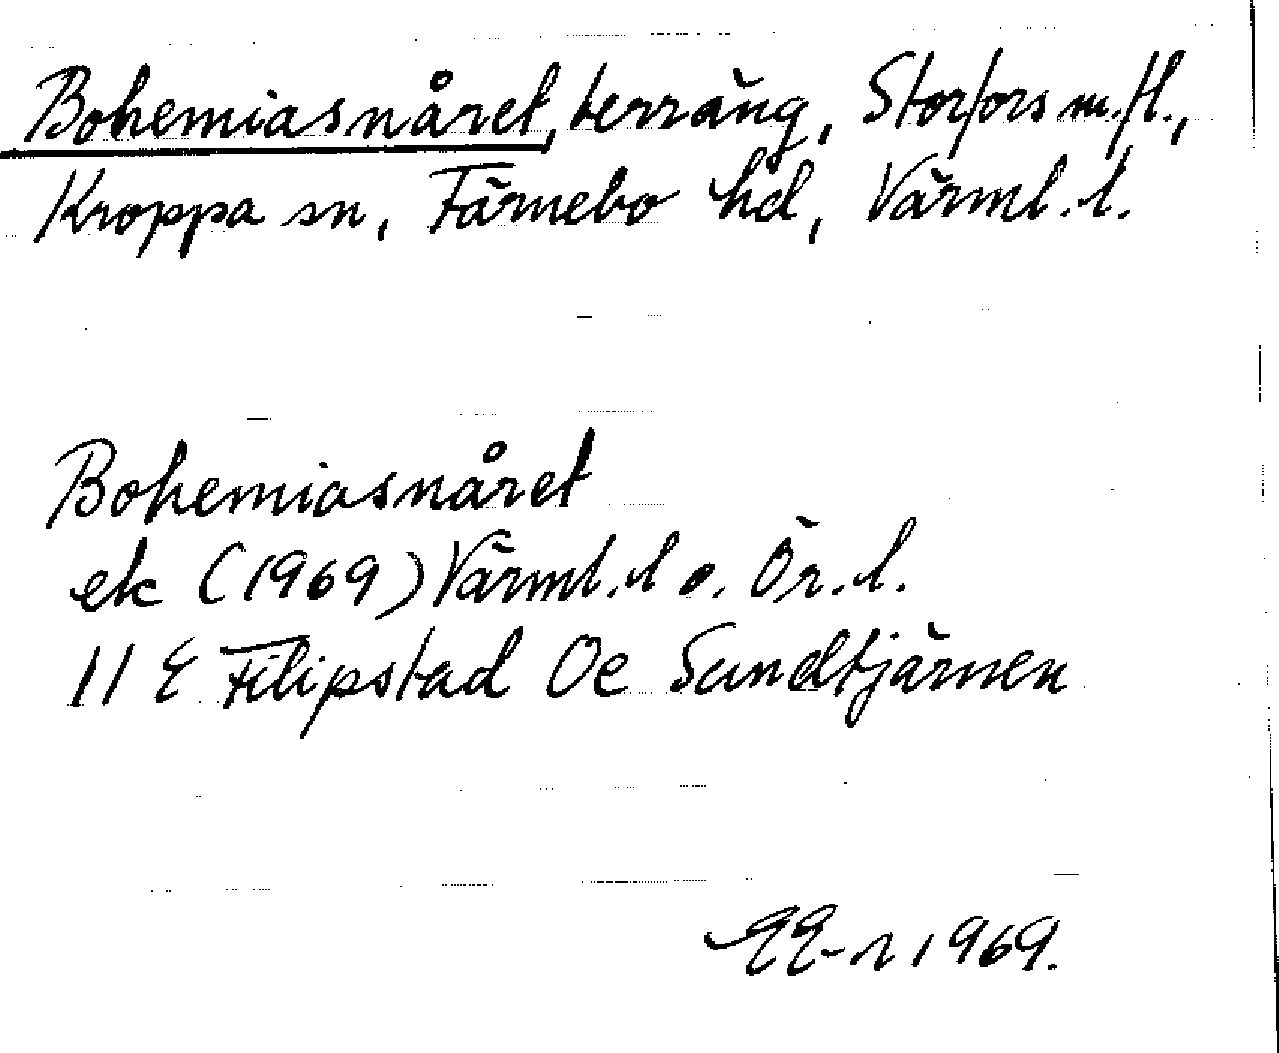 Bohemiasnåret, terräng, Storfors m.fl.,
Kroppa sn, Färnebo hd, Värml. l.
Bohemiasnåret
ek (1969) Värml. l o. Ör. l.
11 E Filipstad 0e Sundtjärnen
1969.